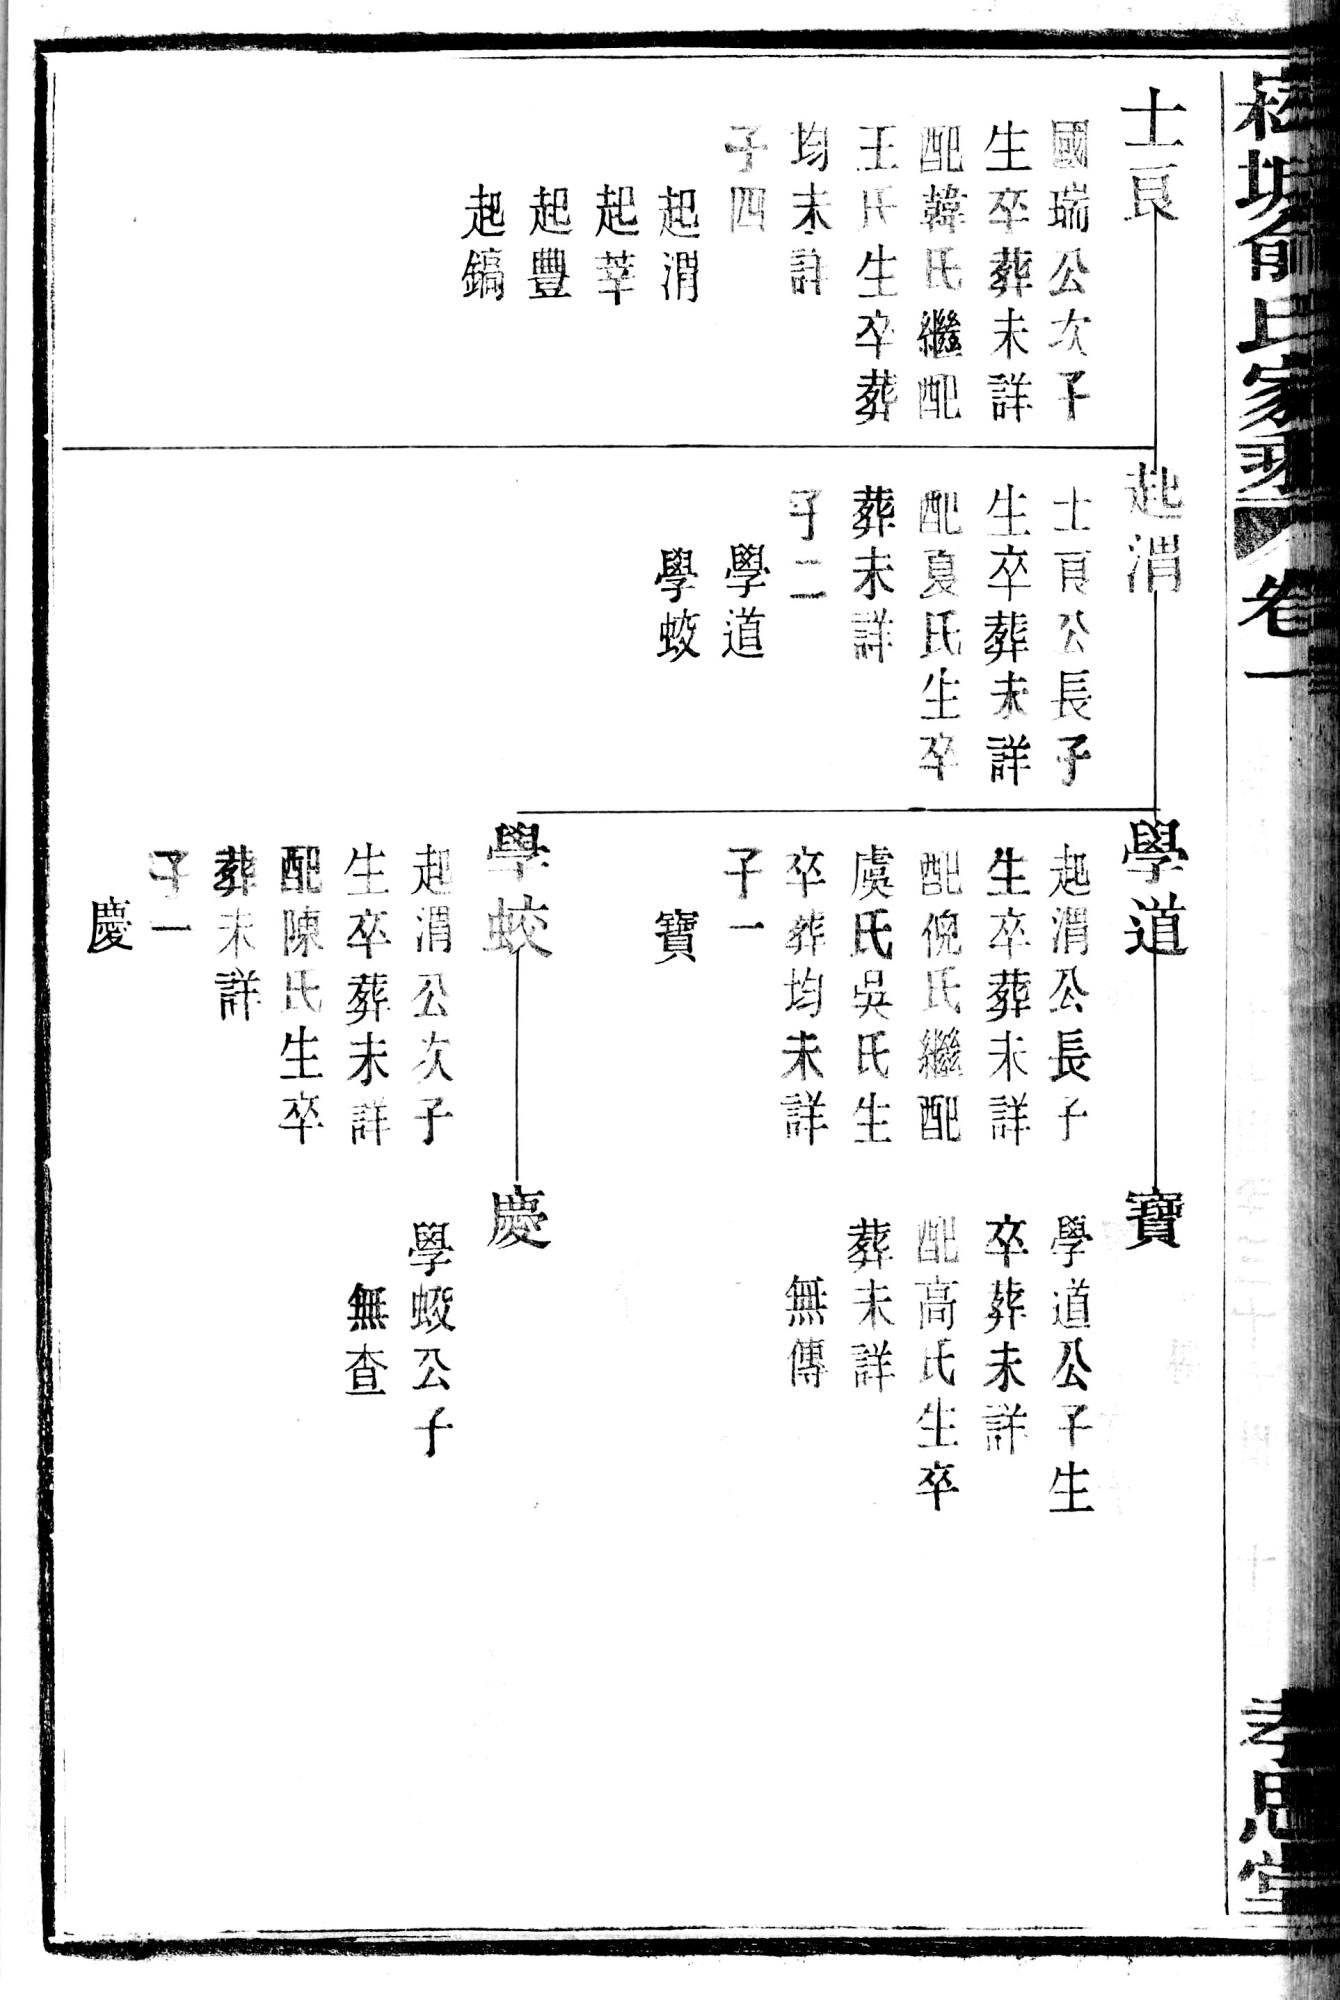 俞氏家乘
卷一
孝思堂
士良
國瑞公次子
生卒葬未詳
配韓氏繼配
王氏生卒葬
均未詳
子四
起渭
起莘
起豐
起鎬
起渭
士良公長子
生卒葬未詳
配夏氏生卒
葬未詳
子二
學道
學蛟
學道
起渭公長子
生卒葬未詳
配倪氏繼配
虞氏吳氏生
卒葬均未詳
子一
寶
學蛟
起渭公次子
生卒葬未詳
配陳氏生卒
葬未詳
子一
慶
寶
學道公子生
卒葬未詳
配高氏生卒
葬未詳
無傳
慶
學蛟公子
無查